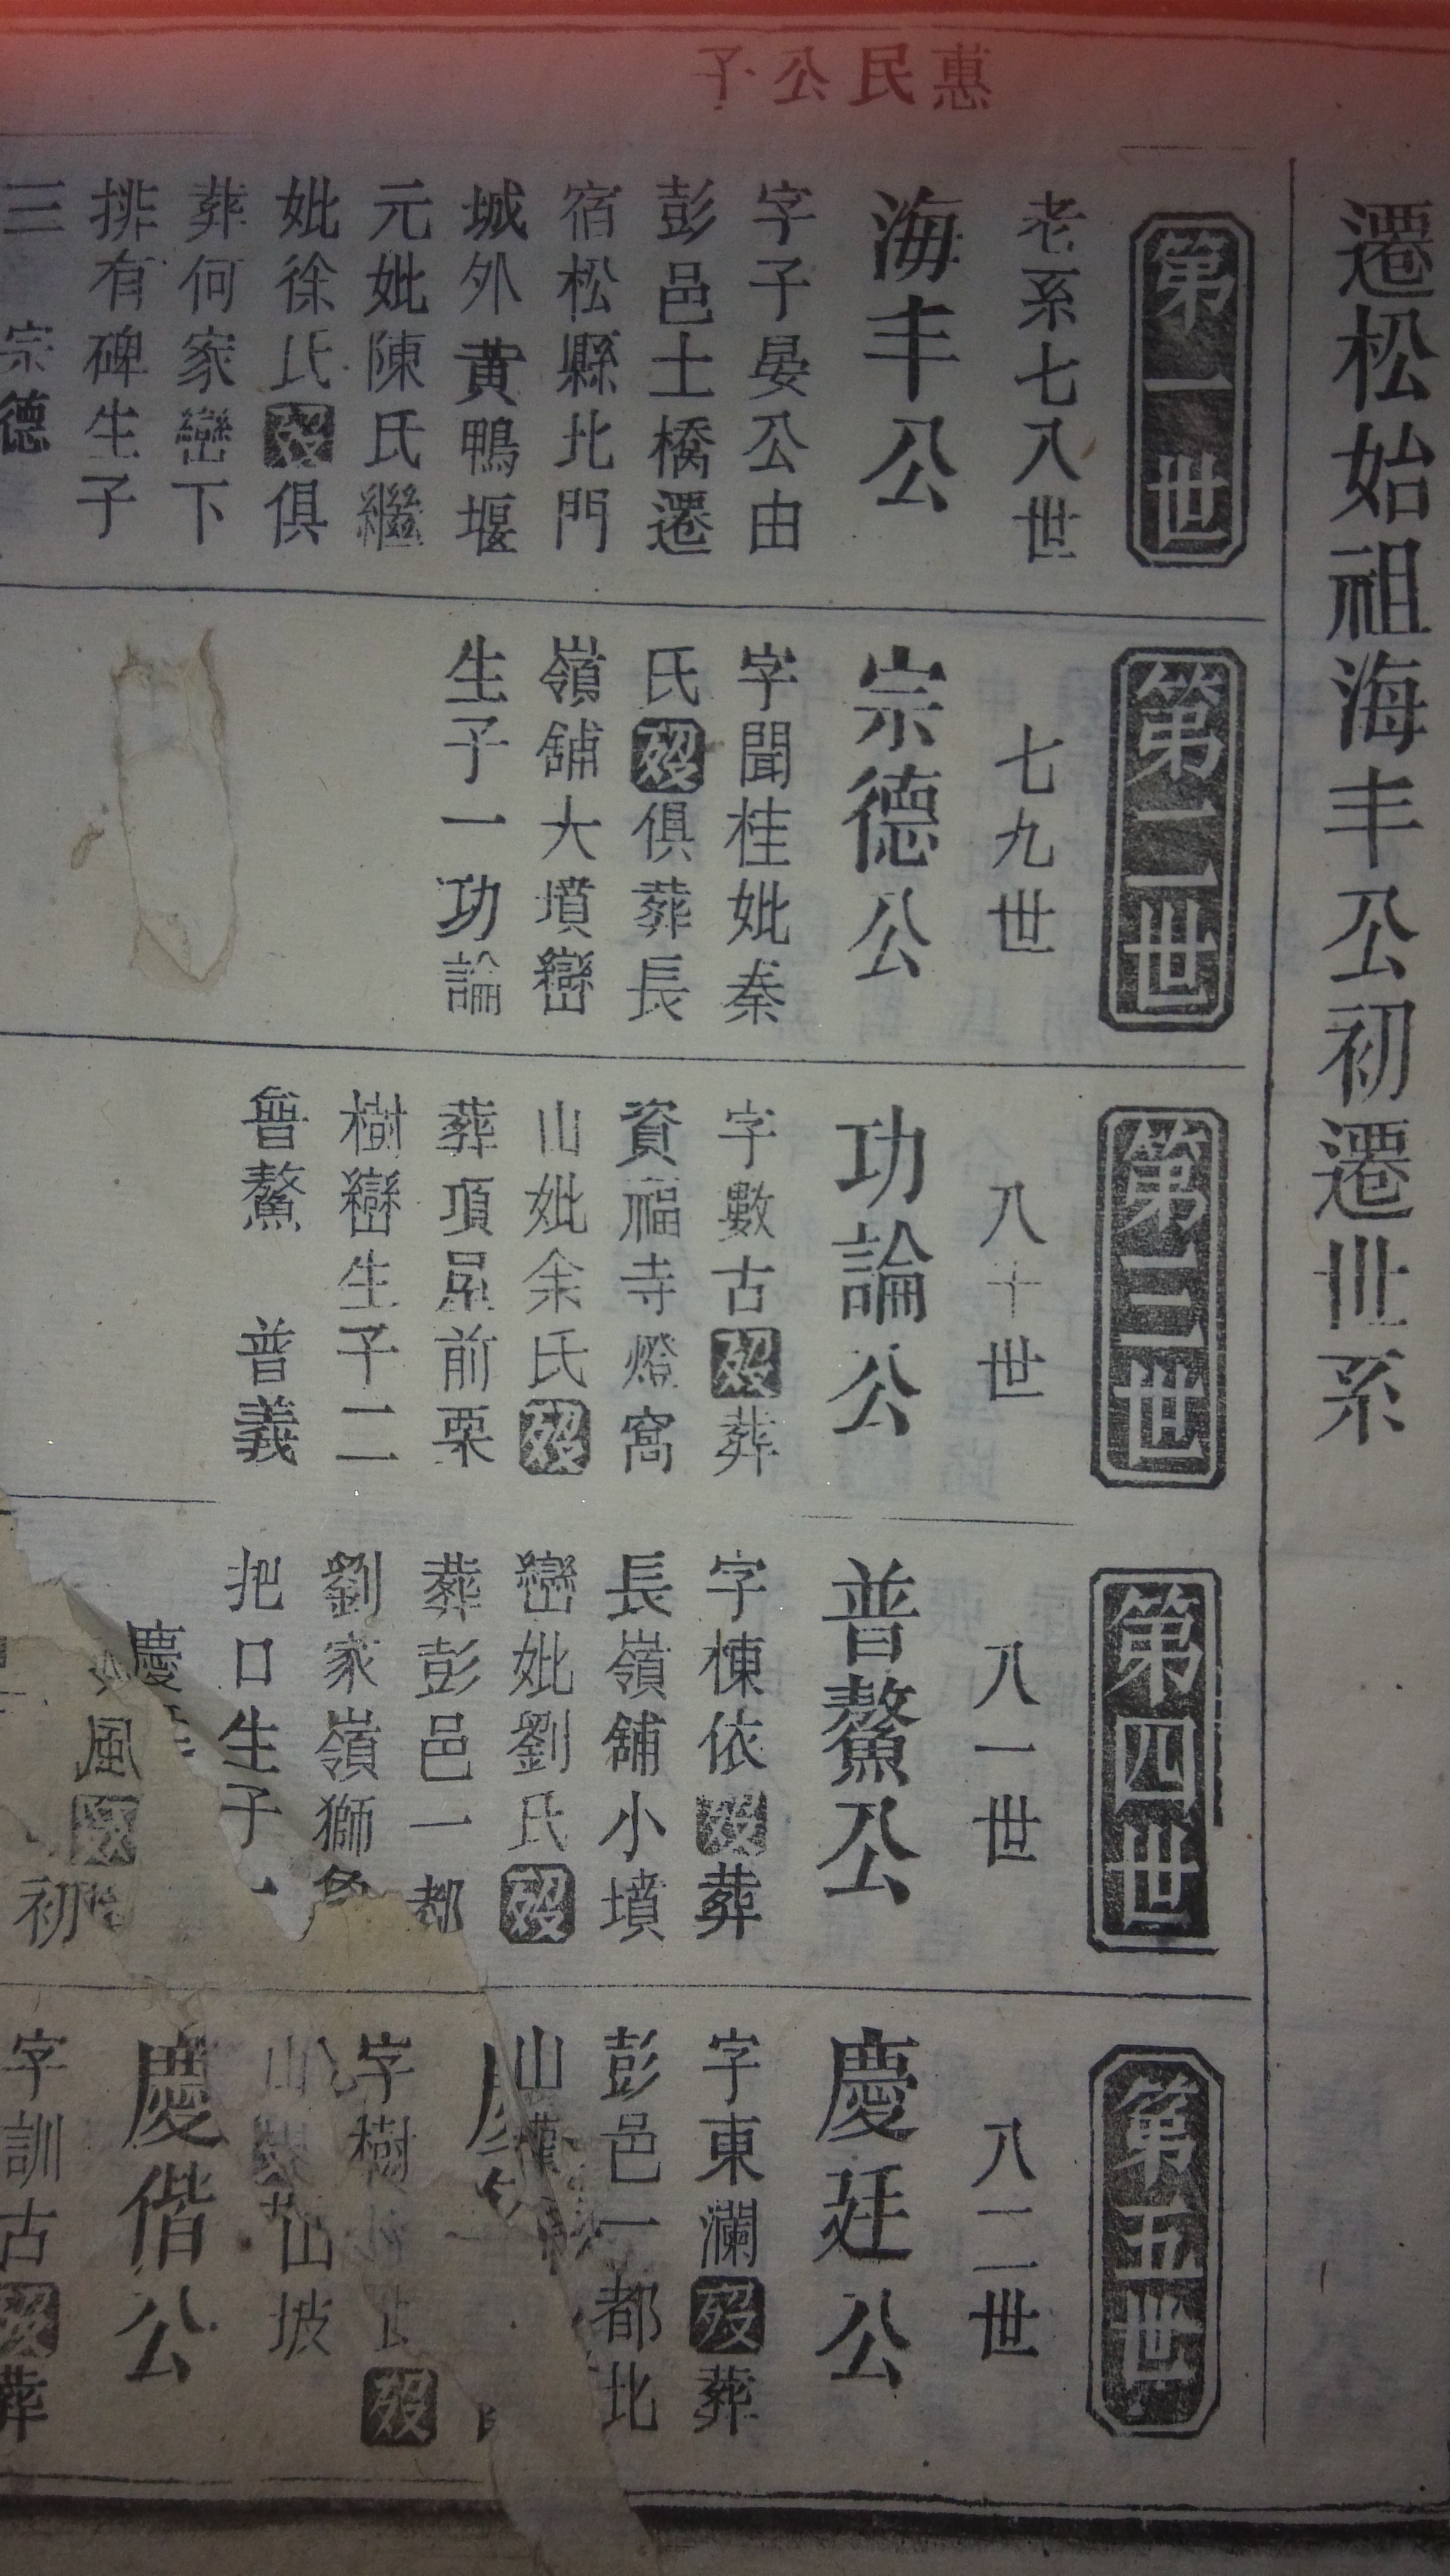 惠民公子
遷松始祖海丰公初遷世系
第一世
老系七八世
海丰公
字子晏公由
彭邑土橋遷
宿松縣北門
城外黄鴨堰
元妣陳氏繼
妣徐氏歿俱
葬何家巒下
排有碑生子
三 宗德
第二世
七九世
宗德公
字聞桂妣秦
氏歿俱葬長
嶺舖大墳巒
生子一功論
第三世
八十世
功論公
字數古歿葬
資福寺燈窩
山妣余氏歿
葬項屋前栗
樹巒生子二
普鰲 普義
第四世
八一世
普鰲公
字棟依歿葬
長嶺舖小墳
巒妣劉氏歿
葬彭邑一都
劉家嶺獅
把口生子
慶
風歿
初
第五世
八二世
慶廷公
字東瀾歿葬
彭邑一都北
山
字樹 歿
山 山坡
慶偕公
字訓古歿葬